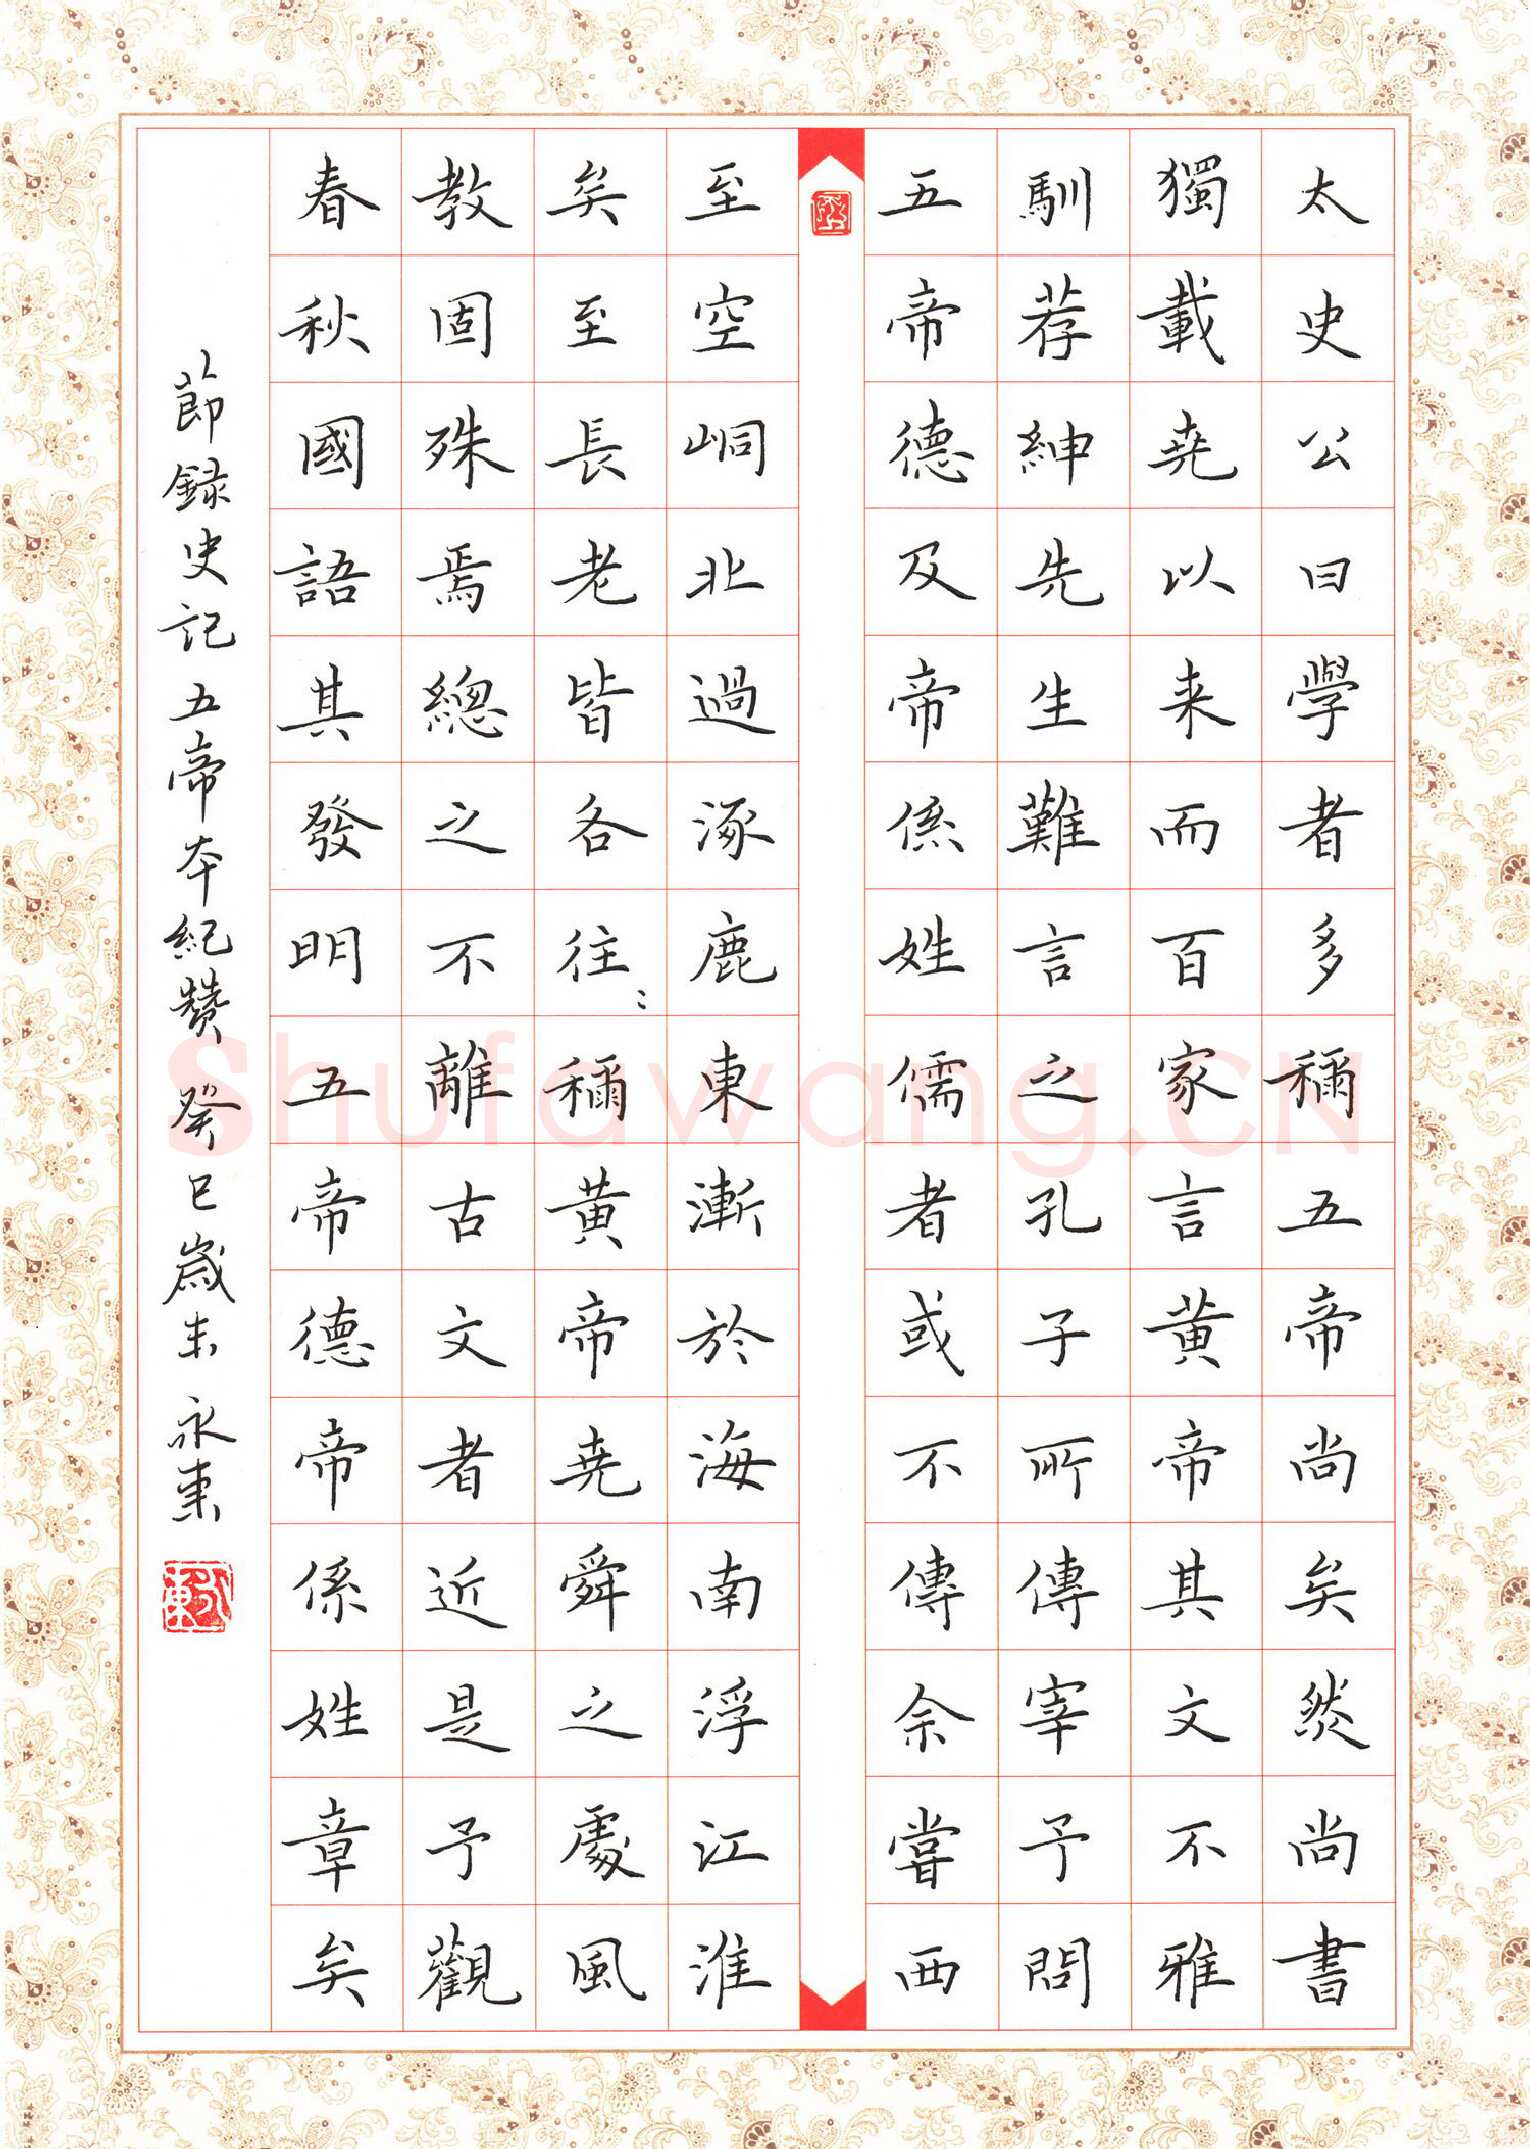 太史公曰學者多稱五帝尚矣然尚書
獨載堯以来而百家言黄帝其文不雅
馴荐紳先生難言之孔子所傳宰予問
五帝德及帝係姓儒者或不傳余嘗西
至空峒北過涿鹿東漸於海南浮江淮
矣至長老皆各往〻稱黄帝堯舜之處風
教固殊焉總之不離古文者近是予觀
春秋國語其發明五帝德帝係姓章矣
節録史記五帝本紀贊 癸巳歲末 永東
Shufawang.CN